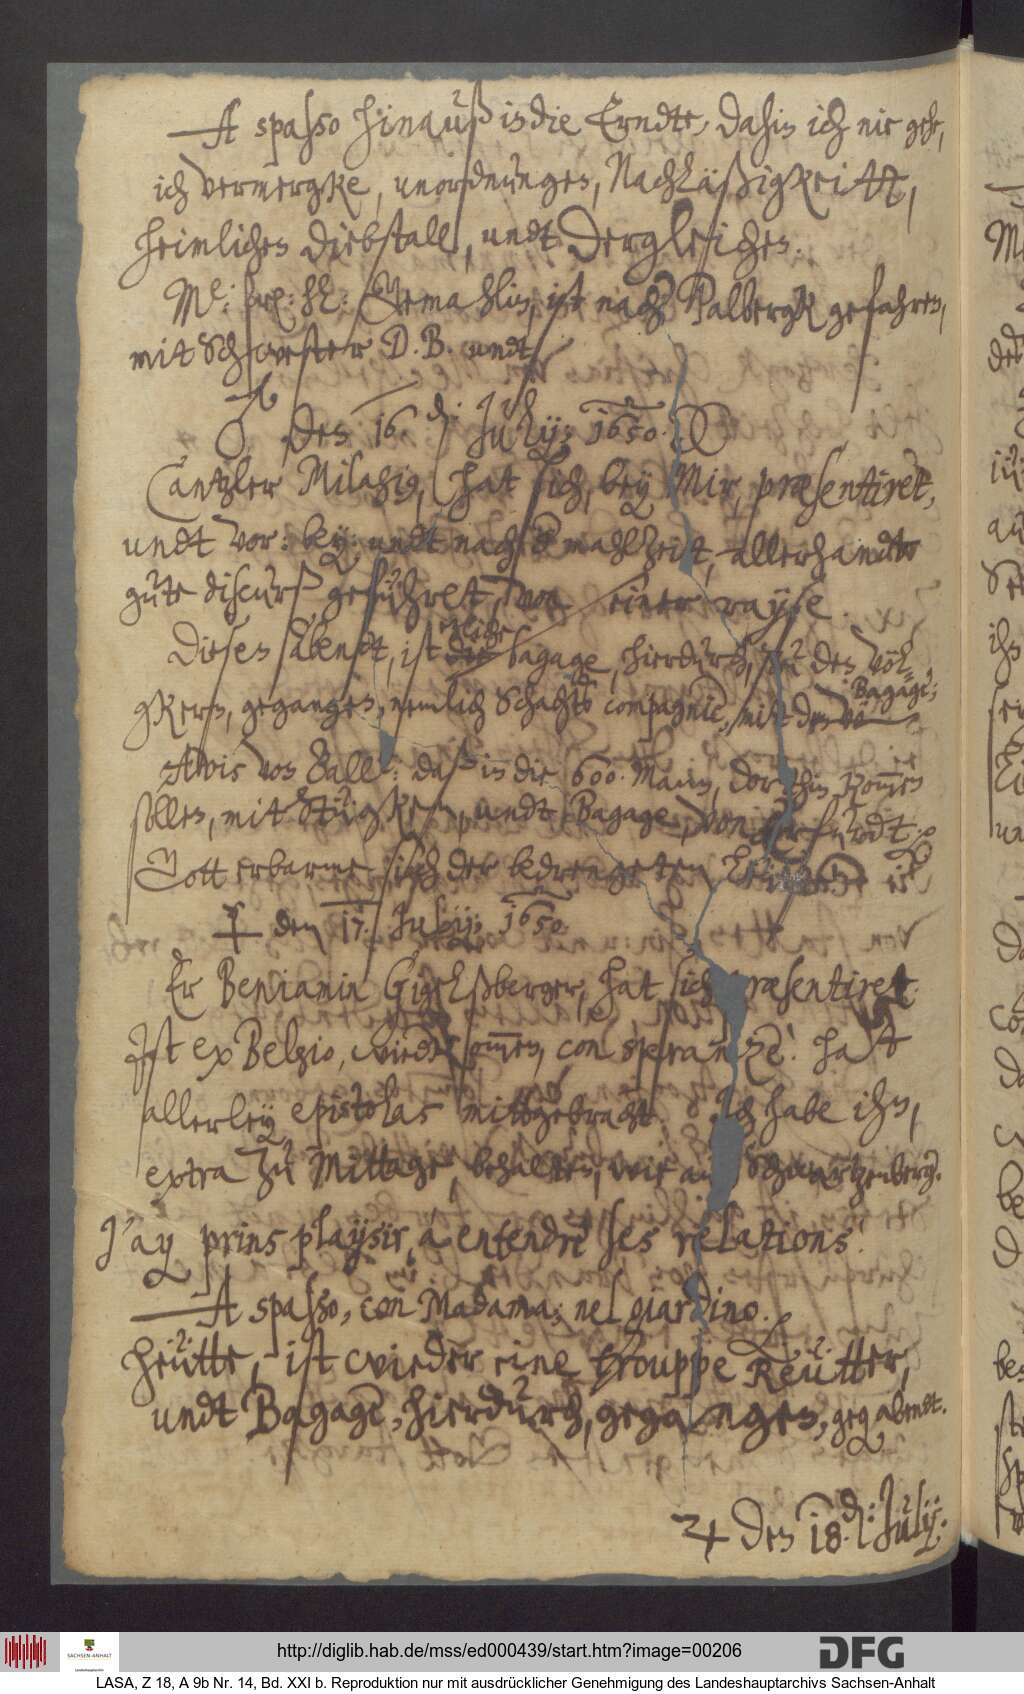 A spasso hinauß in die Erndte, dahin ich nie geh,
ich vermergke, unordnungen, Nachläßigkeitt,
heimlichen diebstall, undt dergleichen.
Me: fr: hl: Gemahlin, ist nach Palbergk gefahren,
mit Schwester D. B. undt
♂ den 16. d: July; 1650.
Cantzler Milagius, hat sich, bey Mir, præsentiret,
undt vor: bey: undt nach d mahlzeitt, allerhandt
gute discurß geführet, von seiner rayse.
Diesen abendt, ist etzliche bagage, hierdurch, zu den völ-
gkern, gegangen, nemlich Schachts compagnie, mitt der Bagage;
Avis von Calbe: daß in die 600. Mann, dorthin kommen
sollen, mit Stügken, undt Bagage, von Erfurdt.
Gott erbarme sich der bedrengeten
☿ den 17. July; 1650.
Er Beniamin Gigelßberger, hat sich præsentiret.
Ist ex Belgio, wiederkommen, con speranze. hatt
allerley epistolas mittgebracht. Ich habe ihn,
extra zu Mittage, behalten, wie auch Schwartzenberg.
J'ay prins playsir, a entendre ses relations.
A spasso, con Madama; nel giardino.
Heütte, ist wieder eine trouppe Reütter,
undt Bagage, hierdurch, gegangen, geg abendt.
♃ den 18. d: July;
http://diglib.hab.de/mss/ed000439/start.htm?image=00206
SACHSEN-ANHALT
Landeshauptarchiv
DFG
LASA, Z 18, A 9b Nr. 14, Bd. XXI b. Reproduktion nur mit ausdrücklicher Genehmigung des Landeshauptarchivs Sachsen-Anhalt